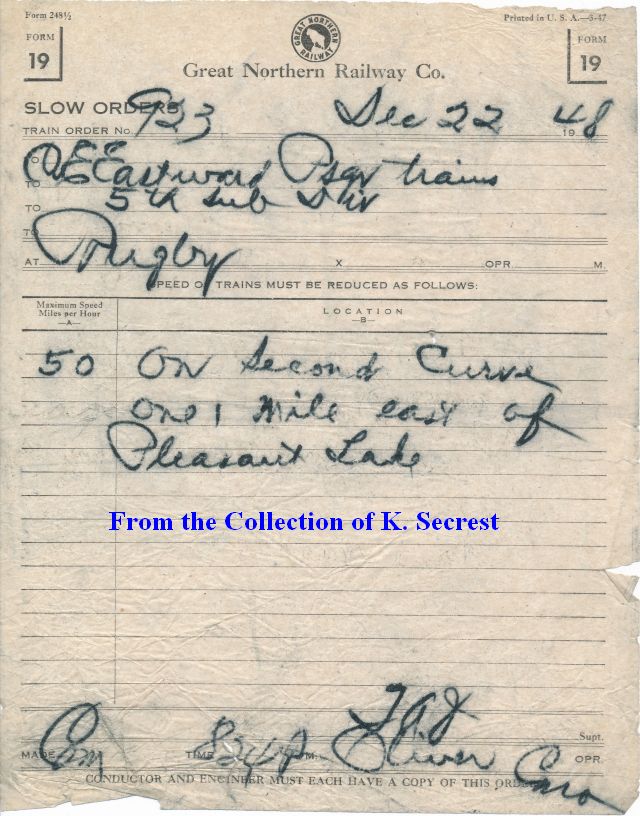 Form 248½
Printed in U. S. A.—3-47
FORM
19
GREAT NORTHERN RAILWAY
FORM
19
Great Northern Railway Co.
SLOW ORDERS
TRAIN ORDER No. 923 Dec 22 1948
TO
TO Eastward Psgr trains
TO 5th Sub Div
TO
AT Rugby X OPR. M.
SPEED OF TRAINS MUST BE REDUCED AS FOLLOWS:
Maximum Speed
Miles per Hour
—A—
LOCATION
—B—
50 On Second Curve
one 1 mile east of
Pleasant Lake
From the Collection of K. Secrest
Supt.
MADE Com TIME M. Oliver OPR.
CONDUCTOR AND ENGINEER MUST EACH HAVE A COPY OF THIS ORDER